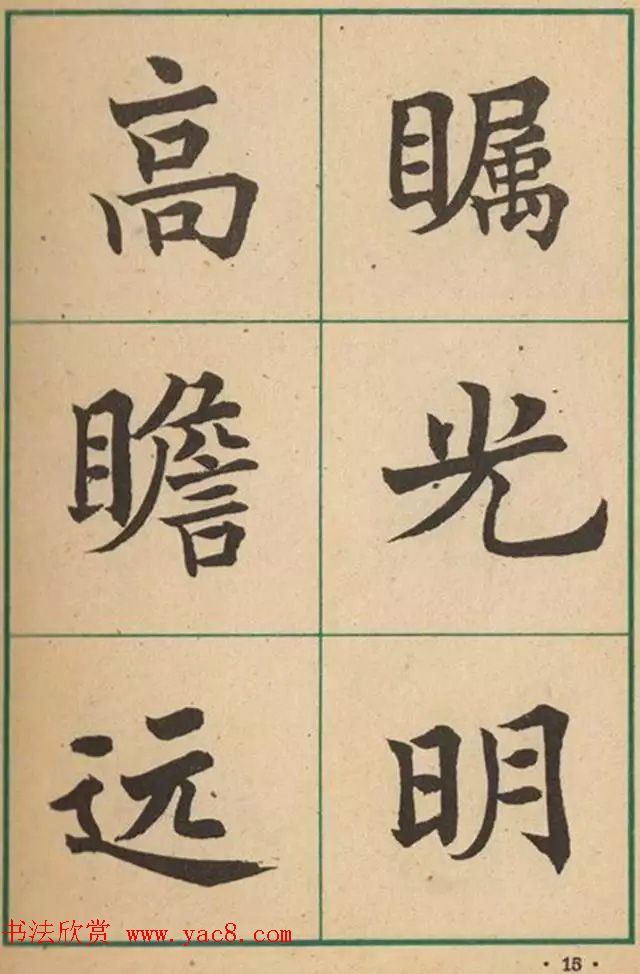 高瞻远
瞩光明
书法欣赏 www.yac8.com
· 15 ·